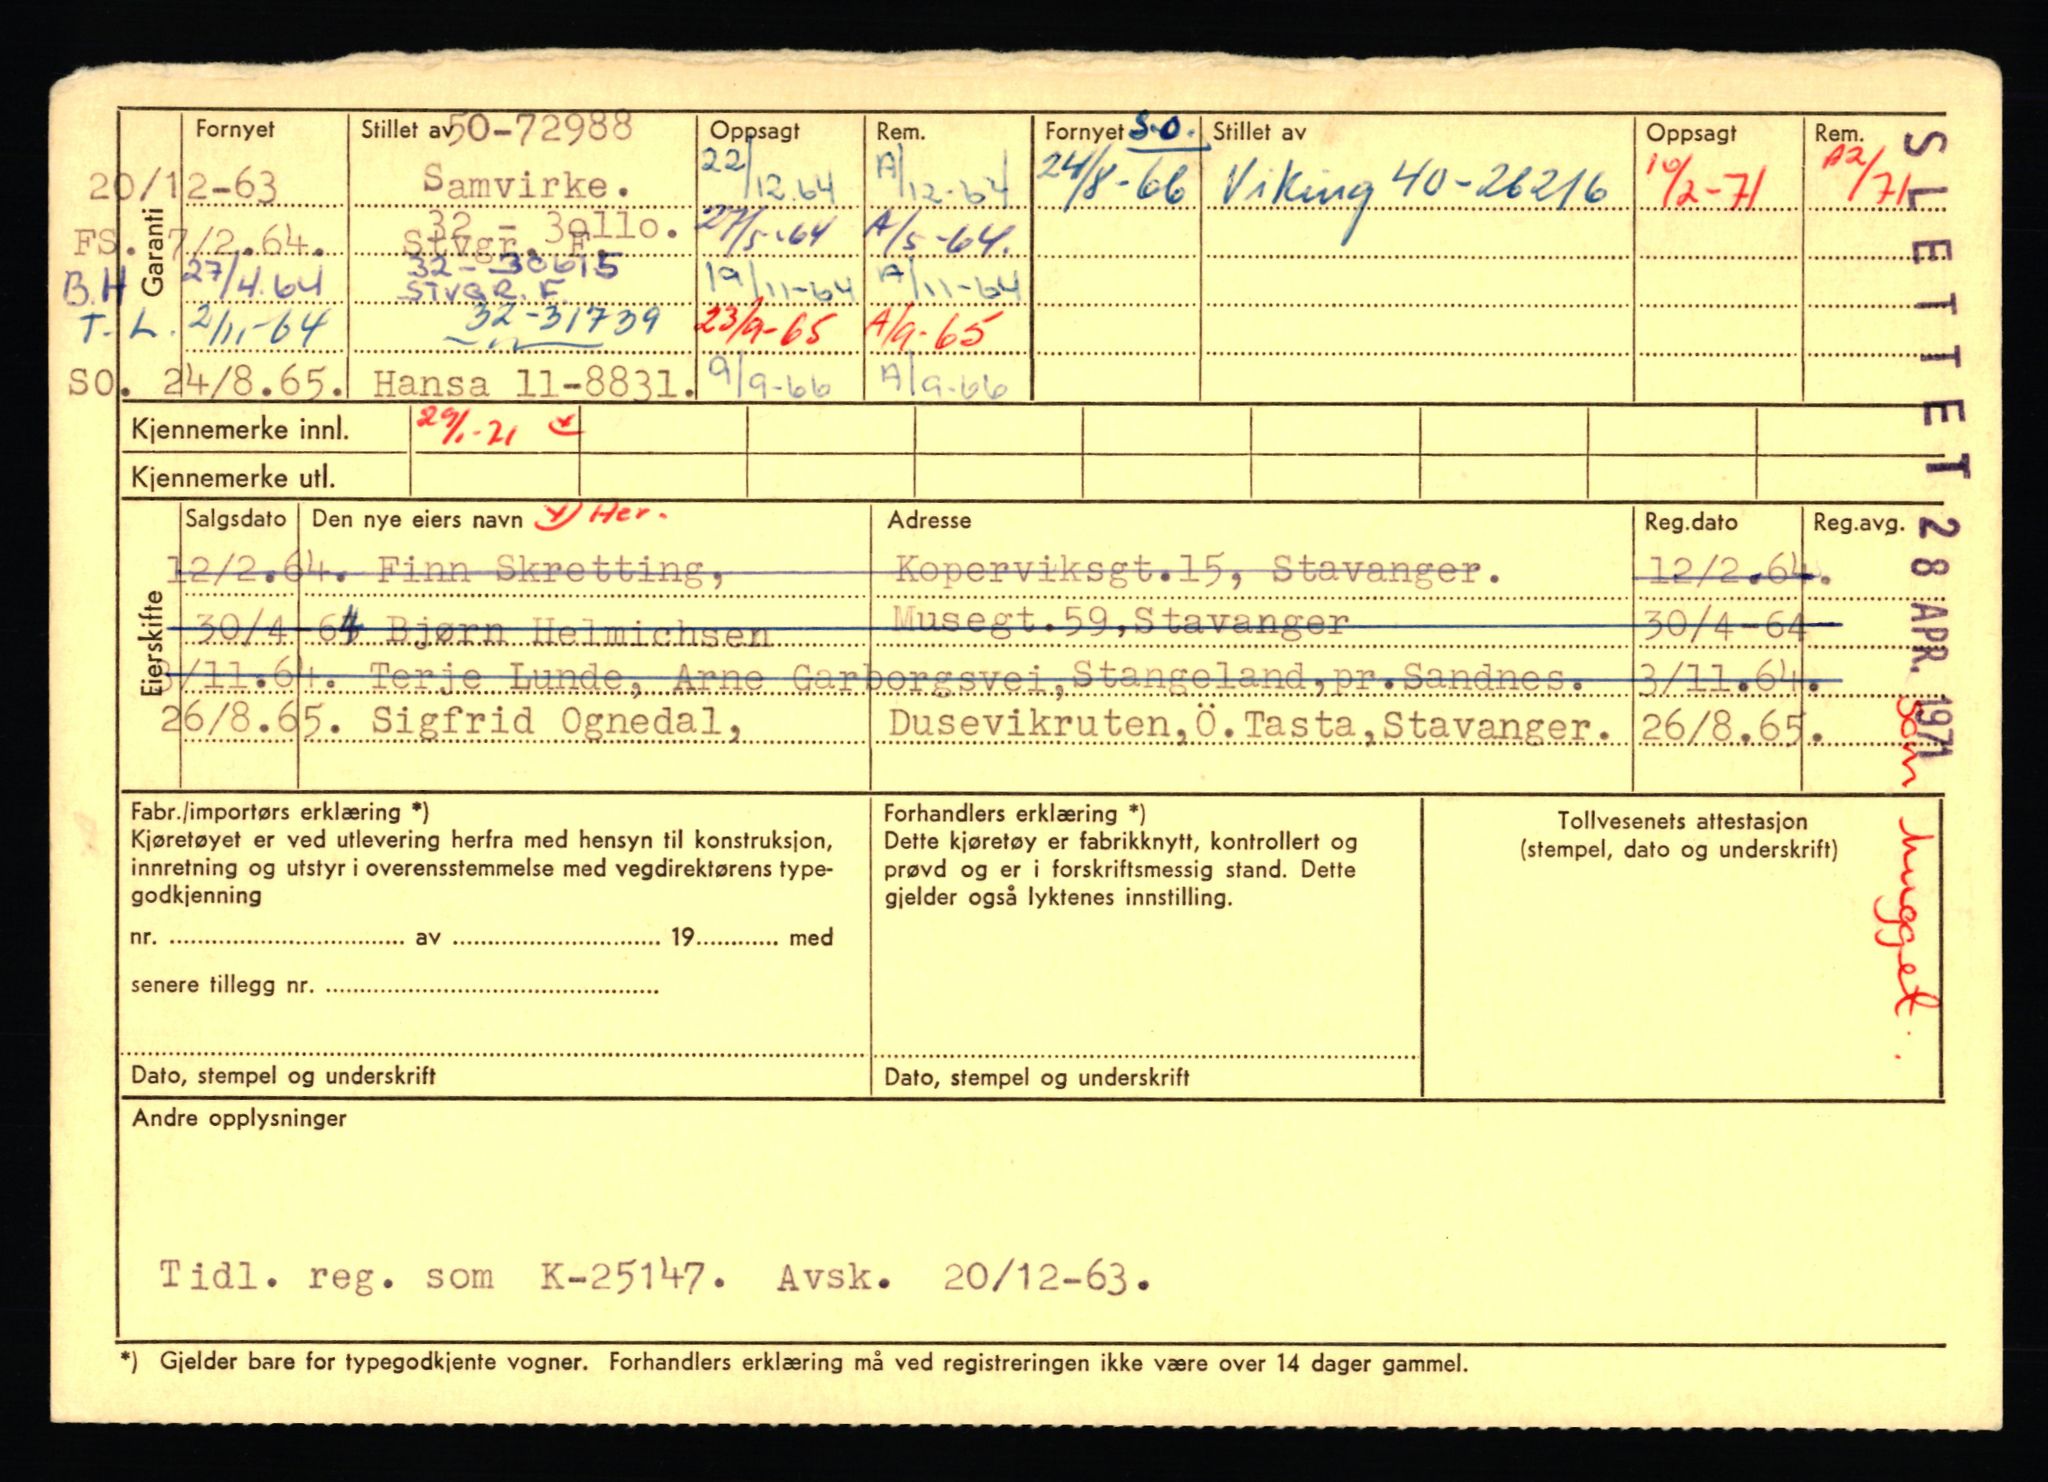 Fornyet Stillet av 50-72988 Oppsagt Rem. Fornyet S.O. Stillet av Oppsagt Rem.
20/12-63 Samvirke. 22/12.64 A/12-64 24/8-66 Viking 40-26216 10/2-71 A2/71
FS. 7/2.64. 32 - 30110. Stvgr. F. 27/5-64 A/5-64.
B.H 27/4.64 32-30615 STVGR. F. 19/11-64 A/11-64
T.L. 2/11-64 32-31739 23/9-65 A/9-65
SO. 24/8.65. Hansa 11-8831. 9/9-66 A/9-66
Garanti
Kjennemerke innl. 29/1-71 x
Kjennemerke utl.
Eierskifte
Salgsdato Den nye eiers navn x) Her. Adresse Reg.dato Reg.avg.
12/2.64. Finn Skretting, Koperviksgt.15, Stavanger. 12/2.64.
30/4-64 Bjørn Helmichsen Musegt.59,Stavanger 30/4-64
3/11.64. Terje Lunde, Arne Garborgsvei,Stangeland,pr.Sandnes. 3/11.64.
26/8.65. Sigfrid Ognedal, Dusevikruten,Ö.Tasta,Stavanger. 26/8.65.
SLETTET 28 APR. 1971
som hugget.
Fabr./importørs erklæring *)
Kjøretøyet er ved utlevering herfra med hensyn til konstruksjon,
innretning og utstyr i overensstemmelse med vegdirektørens type-
godkjenning
nr. ........ av ........ 19........ med
senere tillegg nr. ........
Dato, stempel og underskrift
Forhandlers erklæring *)
Dette kjøretøy er fabrikknytt, kontrollert og
prøvd og er i forskriftsmessig stand. Dette
gjelder også lyktenes innstilling.
Dato, stempel og underskrift
Tollvesenets attestasjon
(stempel, dato og underskrift)
Andre opplysninger
Tidl. reg. som K-25147. Avsk. 20/12-63.
*) Gjelder bare for typegodkjente vogner. Forhandlers erklæring må ved registreringen ikke være over 14 dager gammel.